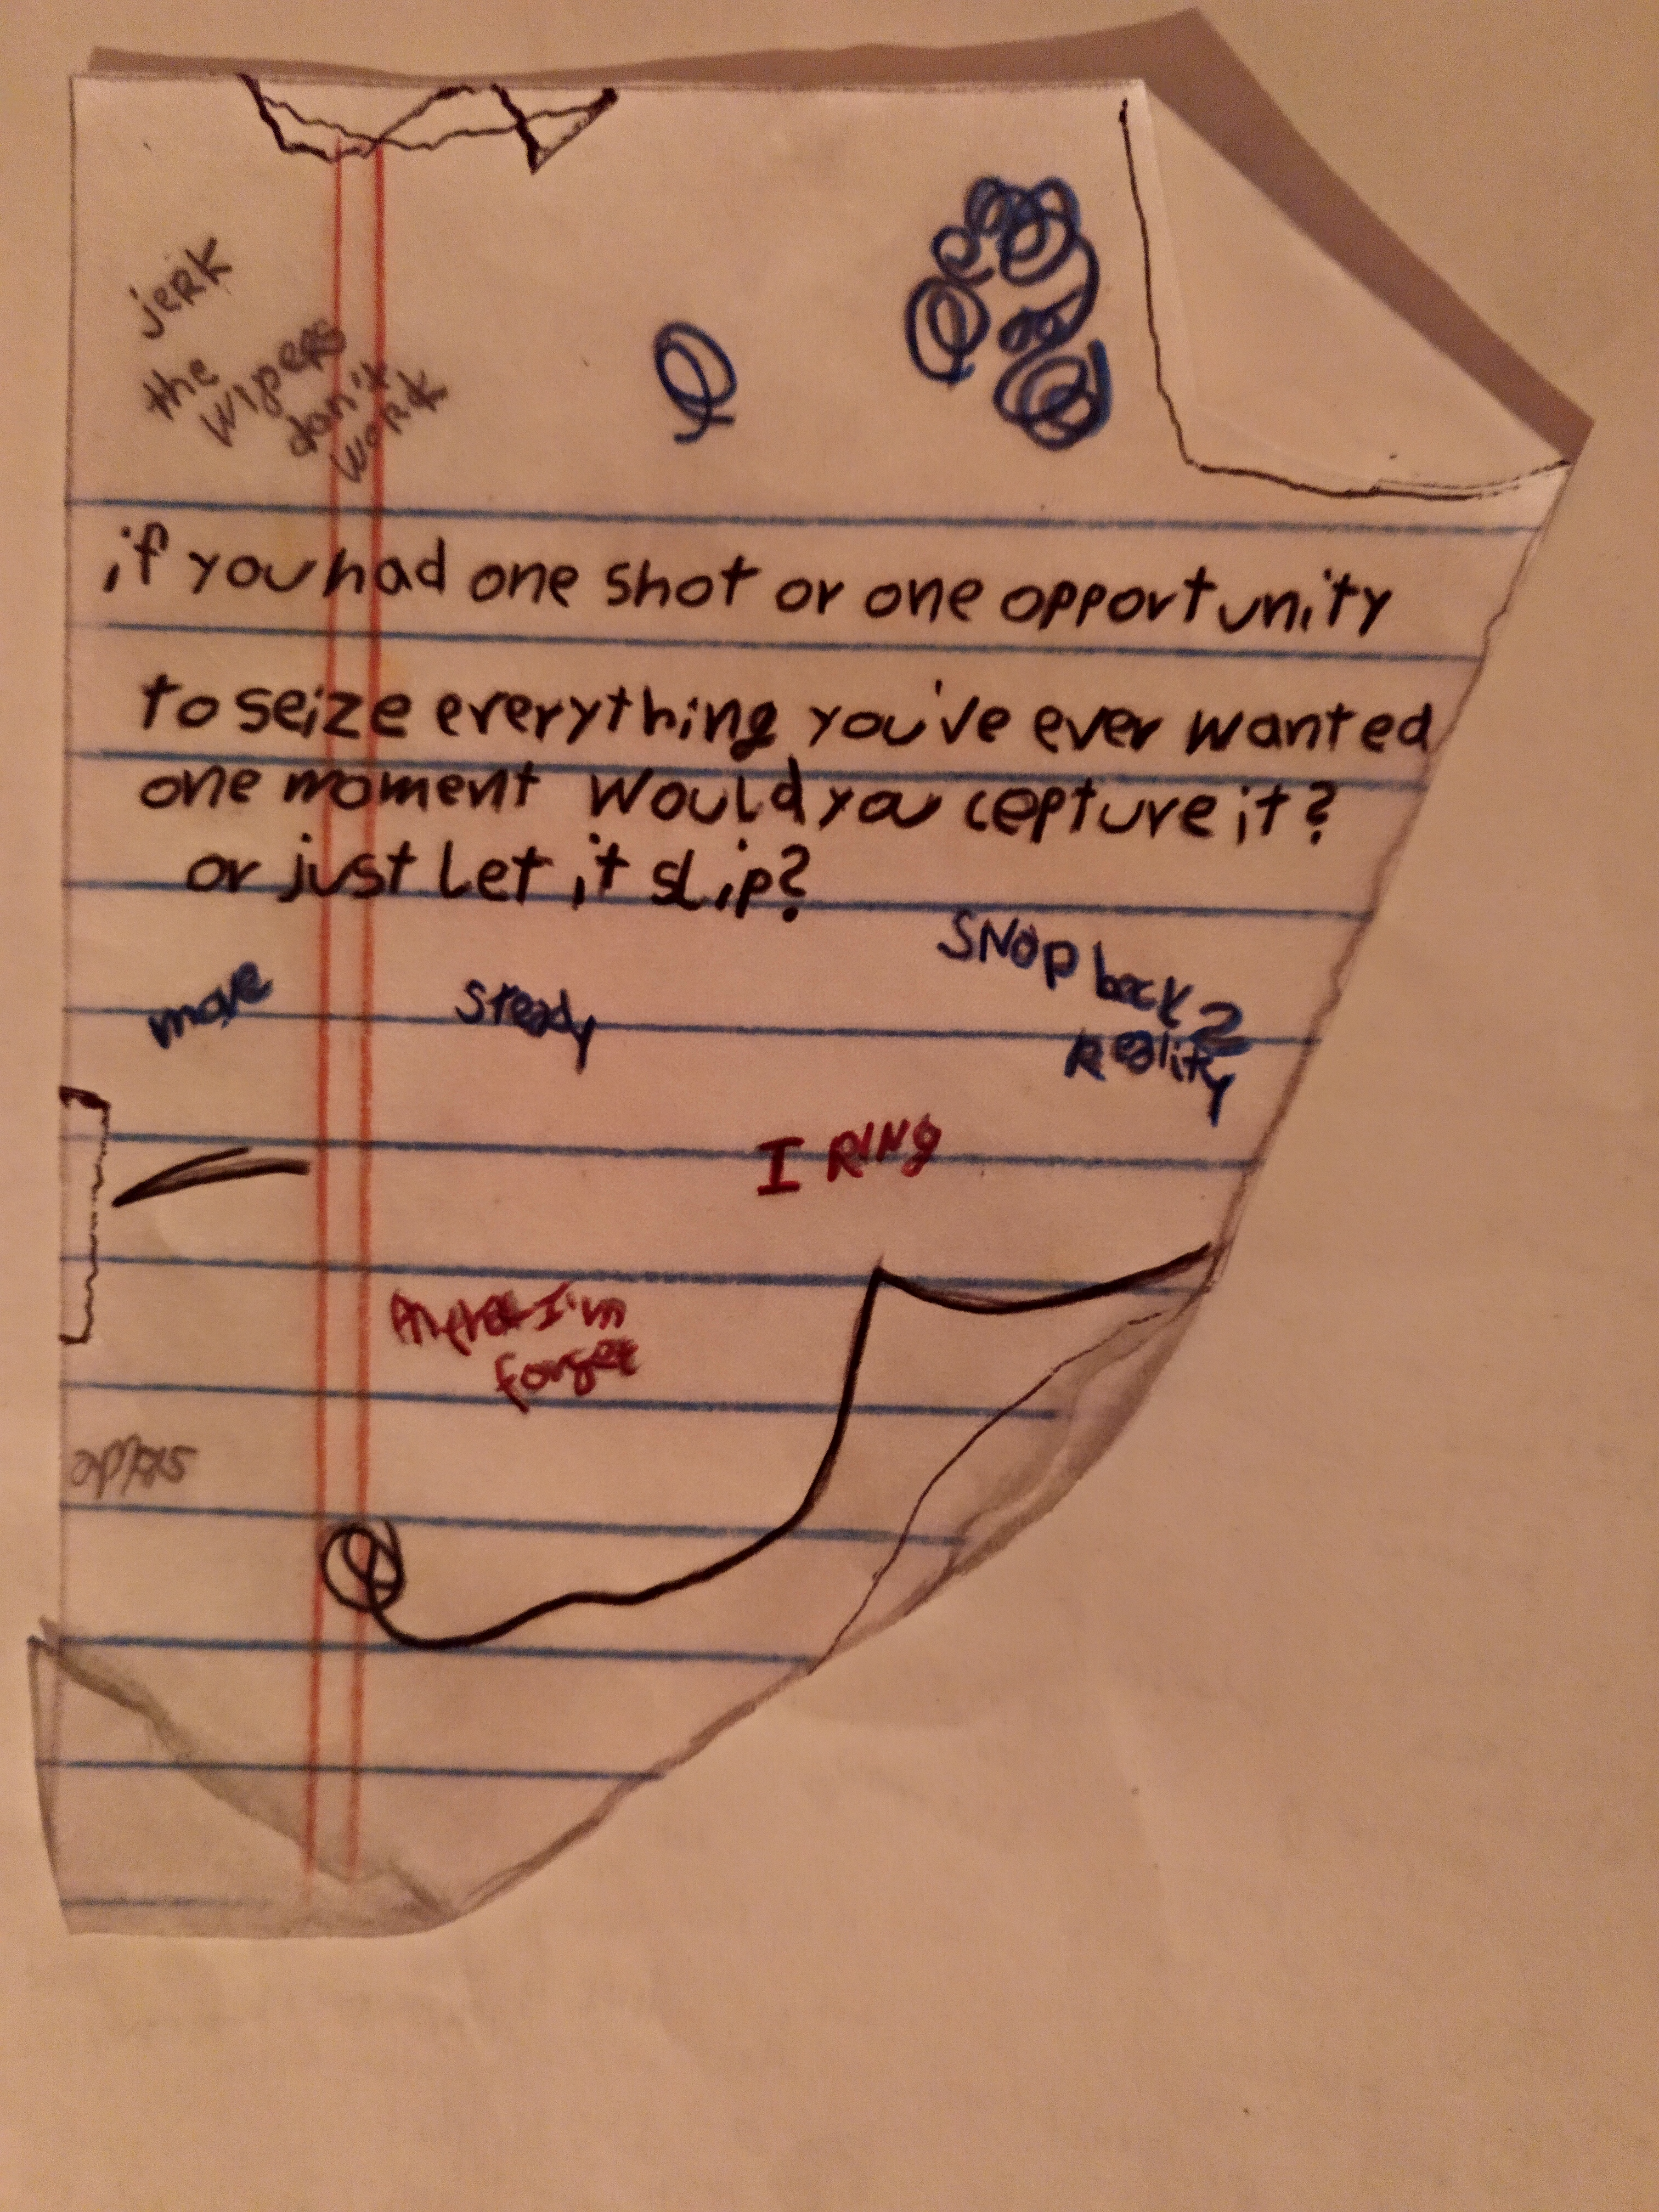 jerk
the
wipers
don't
work
if you had one shot or one opportunity
to seize everything you've ever wanted
one moment would you cepture it?
or just let it slip?
move
steady
snap back 2
Reality
I RING
I'm
forget